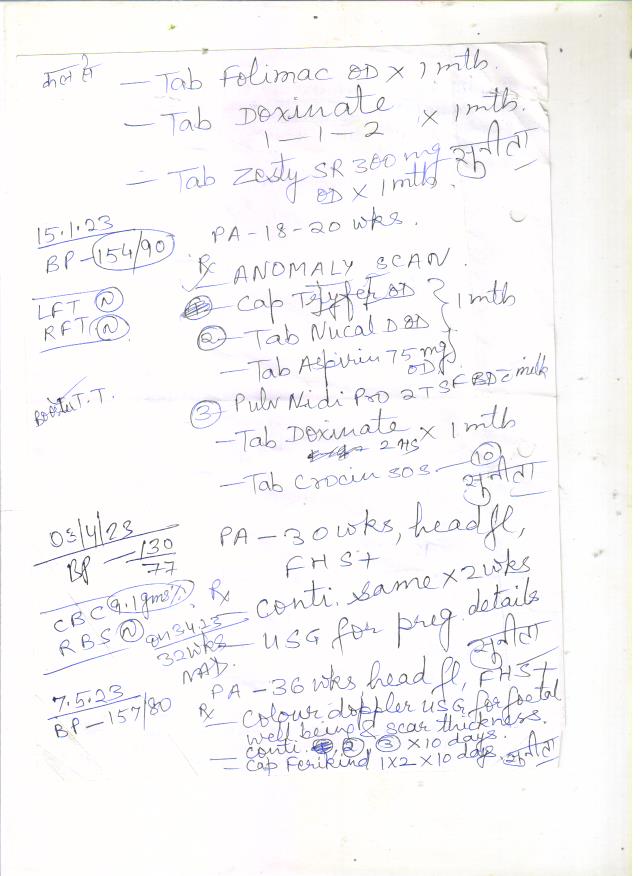 कल से
- Tab Folimac OD x 1 mth.
- Tab Doxinate x 1 mth.
1-1-2
सुनीता
- Tab Zesty SR 300 mg
OD x 1 mth.
15.1.23
BP - 154/90
PA - 18-20 wks.
Rx ANOMALY SCAN.
LFT N
RFT N
Cap OD } 1 mth
② - Tab Nucal D OD
- Tab Aspirin 75 mg OD
Booster T.T.
③ Pulv Nidi Pro 2 TSF BD c milk
- Tab Doxinate x 1 mth
2 HS
- Tab Crocin SOS - 10
सुनीता
03/4/23
BP - 130/77
PA - 30 wks, head fl,
FHS+
CBC 9.1 gms%
RBS N
Rx conti. same x 2 wks
on 3.4.23
32 wks
NAD.
- USG for preg. details
सुनीता
7.5.23
BP - 157/80
PA - 36 wks head fl, FHS+
Rx - Colour doppler USG for foetal
well being & scar thickness.
conti. ②, ③ x 10 days.
- Cap Ferikind 1x2 x 10 days.
सुनीता